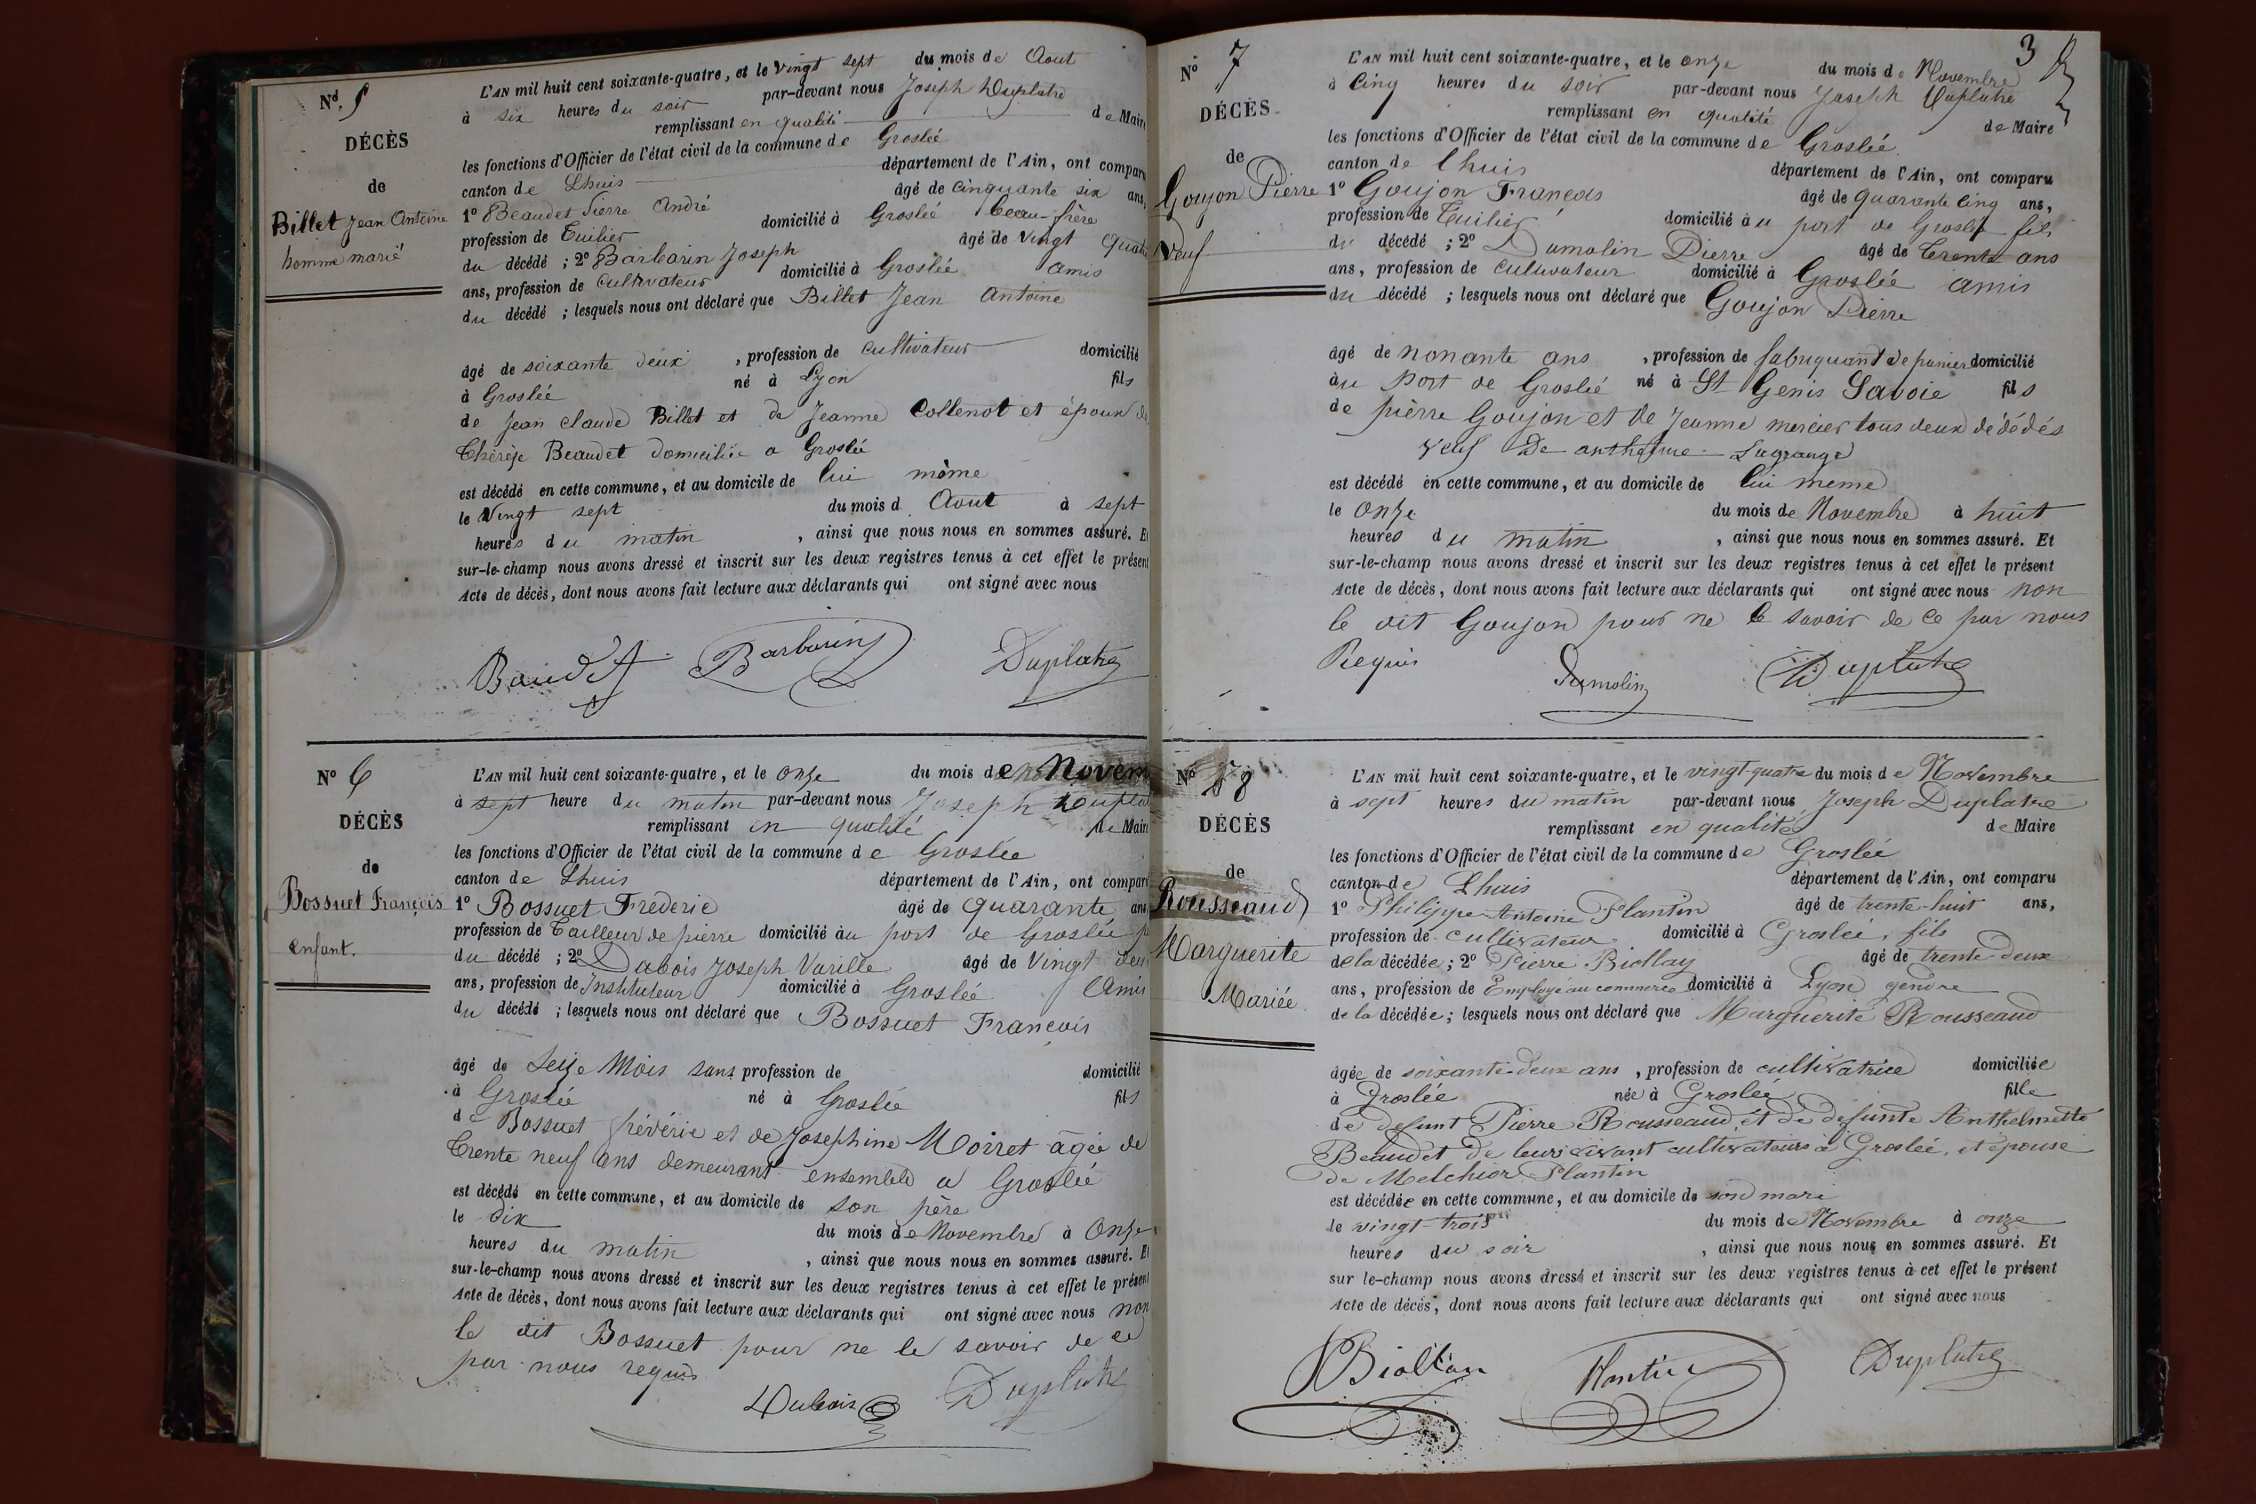 Nº 5
DÉCÈS
de
Billet Jean Antoine
homme marié
L'AN mil huit cent soixante-quatre, et le Vingt sept du mois de Aout
à six heures du soir par-devant nous Joseph Duplatre
remplissant en qualité de Maire
les fonctions d'Officier de l'état civil de la commune de Groslée
canton de Lhuis département de l'Ain, ont comparu
1º Beaudet Pierre André âgé de cinquante six ans,
profession de Tuilier domicilié à Groslée beau-frère
du décédé ; 2º Barbarin Joseph âgé de vingt quatre
ans, profession de cultivateur domicilié à Groslée amis
du décédé ; lesquels nous ont déclaré que Billet Jean Antoine
âgé de soixante deux , profession de cultivateur domicilié
à Groslée né à Lyon fils
de Jean claude Billet et de Jeanne Collenot et époux de
Thérèse Beaudet domiciliée a Groslée
est décédé en cette commune, et au domicile de lui même
le Vingt sept du mois d Aout à sept
heures du matin , ainsi que nous nous en sommes assuré. Et
sur-le-champ nous avons dressé et inscrit sur les deux registres tenus à cet effet le présent
Acte de décès, dont nous avons fait lecture aux déclarants qui ont signé avec nous
Baudet Barbarin Duplatre
Nº 6
DÉCÈS
de
Bossuet François
enfant.
L'AN mil huit cent soixante-quatre, et le onze du mois de Novem
à sept heure du matin par-devant nous Joseph Duplat
remplissant en qualité de Maire
les fonctions d'Officier de l'état civil de la commune de Groslée
canton de Lhuis département de l'Ain, ont comparu
1º Bossuet Fréderic âgé de quarante ans
profession de Tailleur de pierre domicilié au port de Groslée p
du décédé ; 2º Dubois Joseph Varille âgé de Vingt deux
ans, profession de Instituteur domicilié à Groslée Amis
du décédé ; lesquels nous ont déclaré que Bossuet François
âgé de Seize Mois sans profession de domicilié
à Groslée né à Groslée fils
de Bossuet frévéric et de Josephine Moirret âgée de
Trente neuf ans demeurant ensemble a Groslée
est décédé en cette commune, et au domicile de son père
le dix du mois de Novembre à Onze
heures du matin , ainsi que nous nous en sommes assuré. Et
sur-le-champ nous avons dressé et inscrit sur les deux registres tenus à cet effet le présent
Acte de décès, dont nous avons fait lecture aux déclarants qui ont signé avec nous non
le dit Bossuet pour ne le savoir de ce
par nous requis
Dubois Duplatre
3
Nº 7
DÉCÈS
de
Goujon Pierre
Veuf
L'AN mil huit cent soixante-quatre, et le onze du mois de Novembre
à Cinq heures du soir par-devant nous Joseph Duplatre
remplissant en qualité de Maire
les fonctions d'Officier de l'état civil de la commune de Groslée
canton de Lhuis département de l'Ain, ont comparu
1º Goujon François âgé de quarante cinq ans,
profession de Tuilier domicilié au port de Groslée fils
du décédé ; 2º Dumolin Pierre âgé de Trente ans
ans, profession de cultivateur domicilié à Groslée amis
du décédé ; lesquels nous ont déclaré que Goujon Pierre
âgé de nonante ans , profession de fabriquant de panier domicilié
au Port de Groslée né à St Genis Savoie fils
de pièrre Goujon et de Jeanne mercier tous deux dédédés
veuf De anthelme Lagrange
est décédé en cette commune, et au domicile de lui meme
le onze du mois de Novembre à huit
heures du matin , ainsi que nous nous en sommes assuré. Et
sur-le-champ nous avons dressé et inscrit sur les deux registres tenus à cet effet le présent
Acte de décès, dont nous avons fait lecture aux déclarants qui ont signé avec nous non
le dit Goujon pour ne le savoir de ce par nous
Requis Dumolin Duplatre
Nº 8
DÉCÈS
de
Rousseaud
Marguerite
Mariée
L'AN mil huit cent soixante-quatre, et le vingt-quatre du mois de Novembre
à sept heures du matin par-devant nous Joseph Duplatre
remplissant en qualité de Maire
les fonctions d'Officier de l'état civil de la commune de Groslée
canton de Lhuis département de l'Ain, ont comparu
1º Philippe Antoine Plantin âgé de trente-huit ans,
profession de cultivateur domicilié à Groslée, fils
de la décédée ; 2º Pierre Biollay âgé de trente deux
ans, profession de Employé au commerce domicilié à Lyon gendre
de la décédée ; lesquels nous ont déclaré que Marguerite Rousseaud
âgée de soixante-deux ans , profession de cultivatrice domiciliée
à Groslée née à Groslée fille
de defunt Pierre Rousseaud et de défunte Anthelmette
Beaudet de leur vivant cultivateurs à Groslée, et épouse
de Melchior Plantin
est décédée en cette commune, et au domicile de son mari
le vingt-trois du mois de Novembre à onze
heures du soir , ainsi que nous nous en sommes assuré. Et
sur le-champ nous avons dressé et inscrit sur les deux registres tenus à cet effet le présent
Acte de décès, dont nous avons fait lecture aux déclarants qui ont signé avec nous
Plantin Duplatre